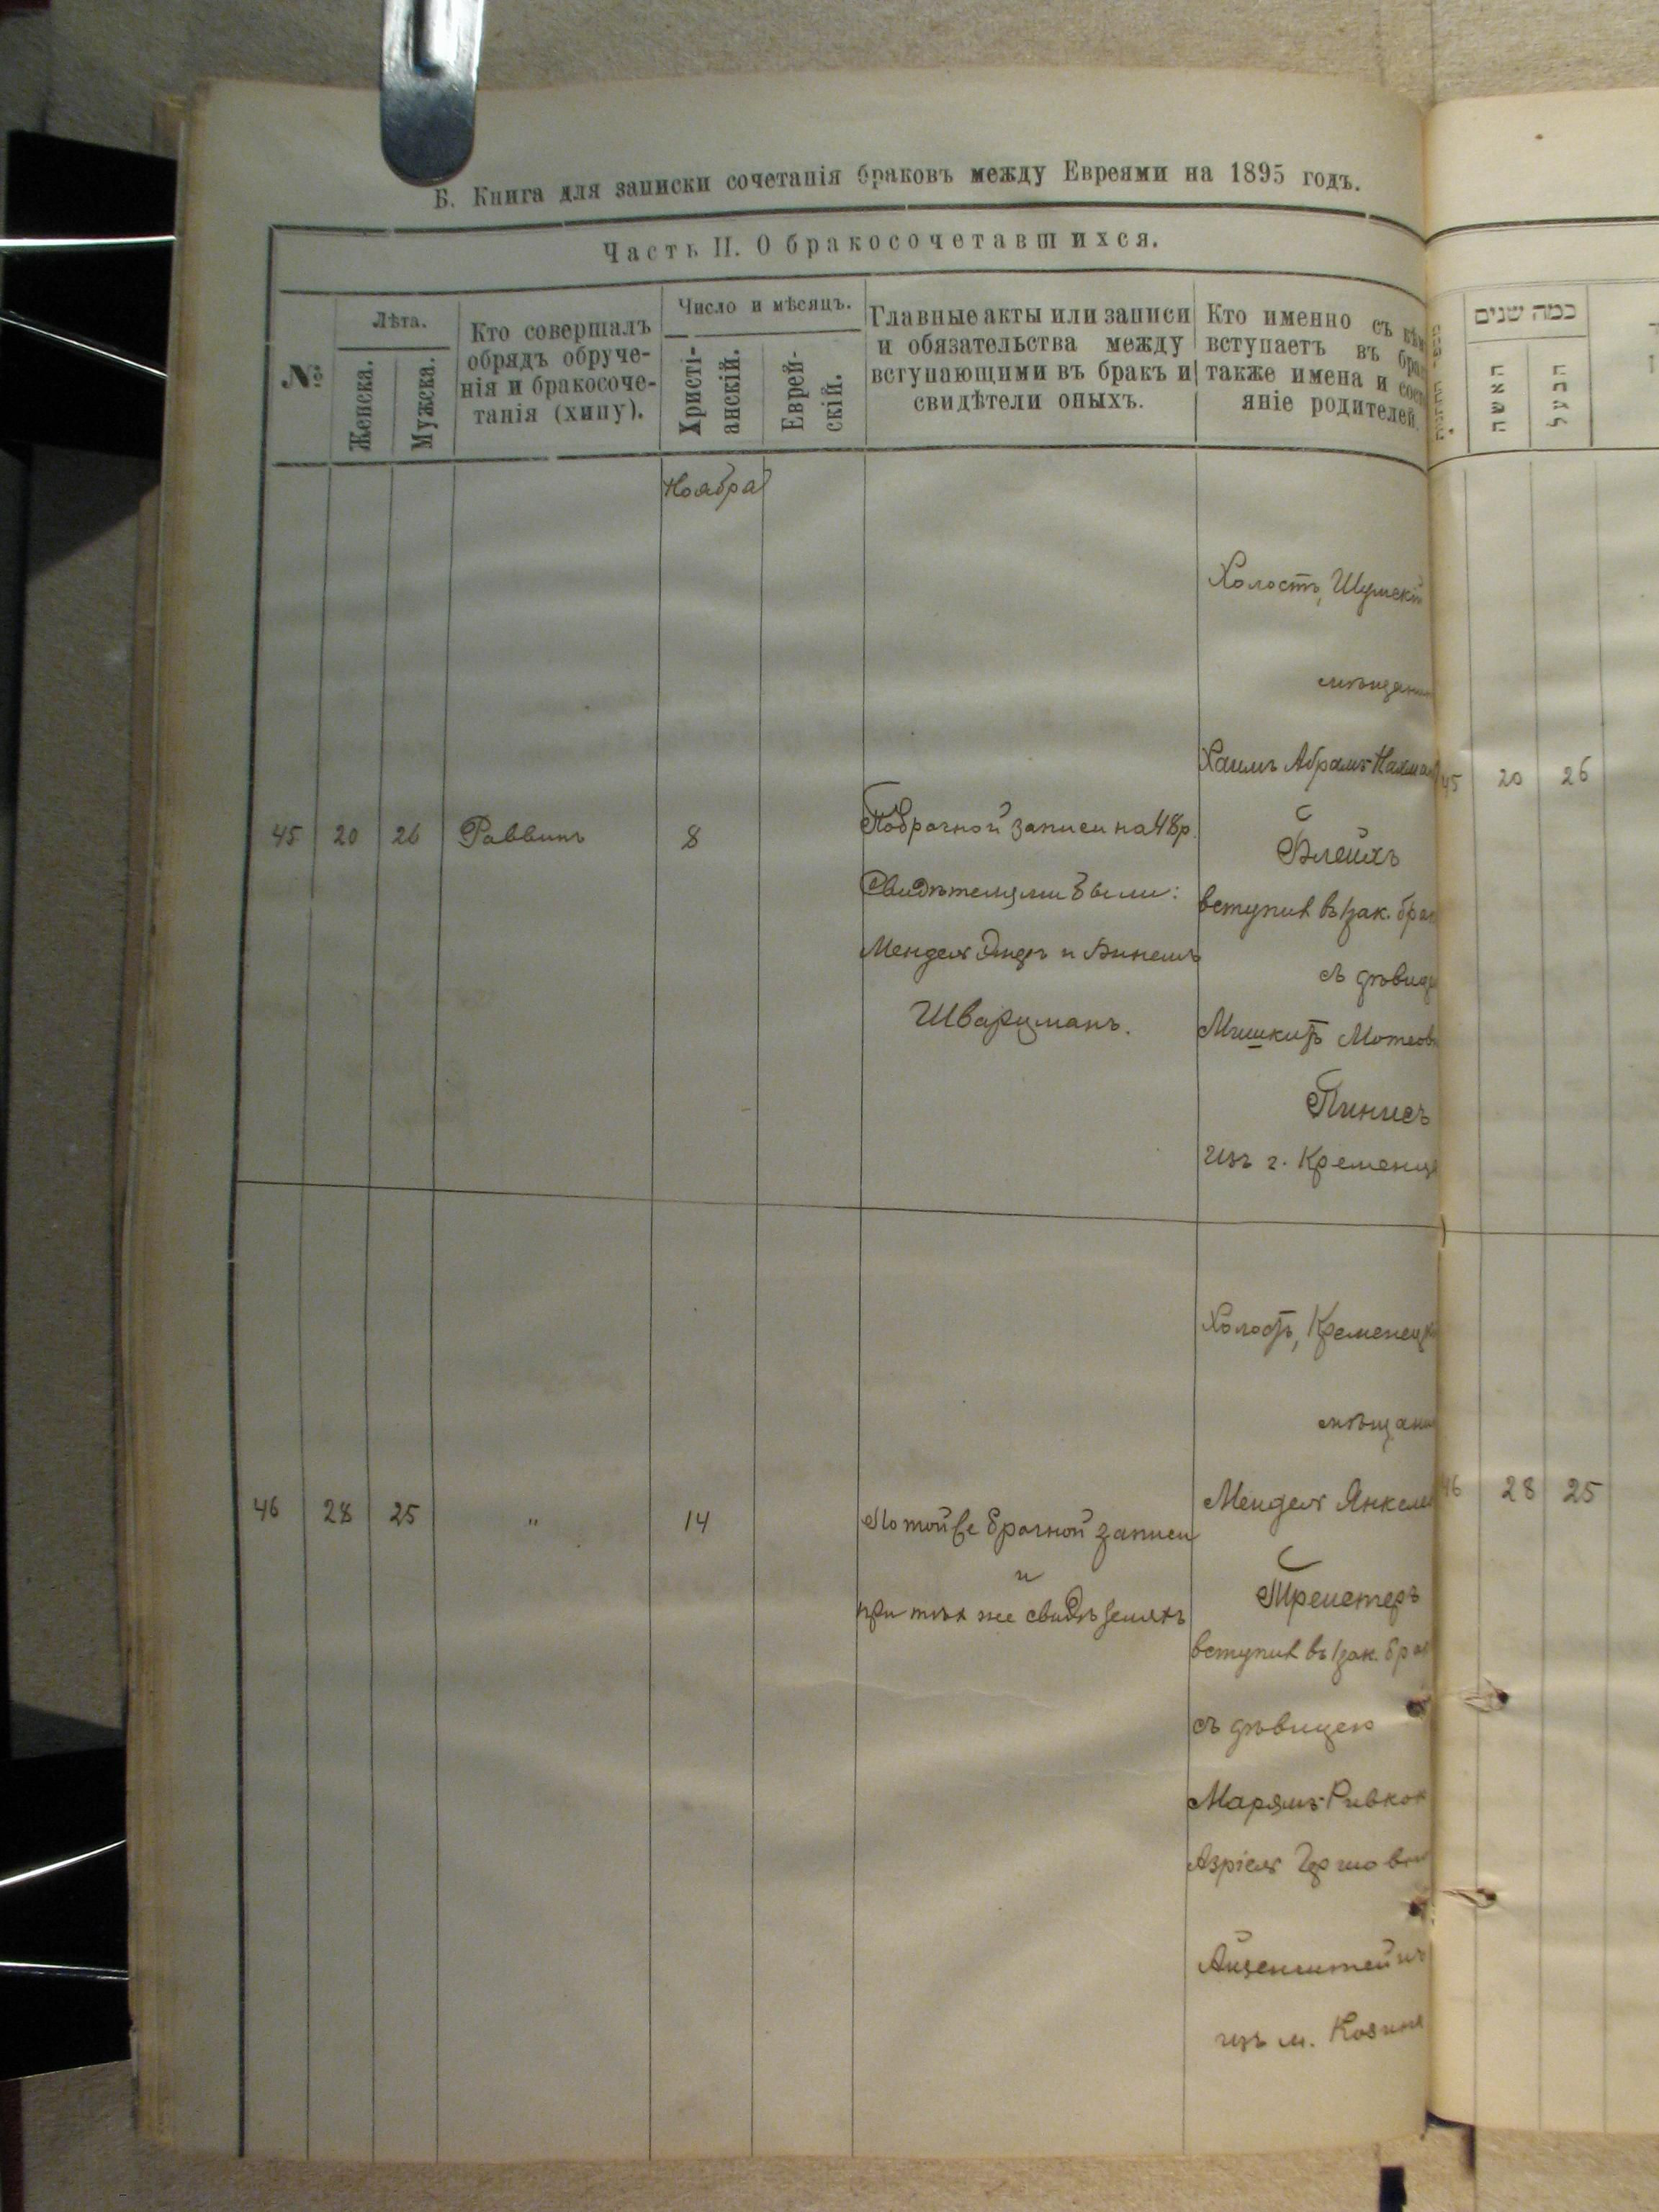 Б. Книга для записки сочетанія браковъ между Евреями на 1895 годъ.
Часть II. О бракосочетавшихся.
№
Лѣта.
Женска.
Мужска.
Кто совершалъ
обрядъ обруче-
нія и бракосоче-
танія (хипу).
Число и мѣсяцъ.
Христі-
анскій.
Еврей-
скій.
Главные акты или записи
и обязательства между
вступающими въ бракъ и
свидѣтели оныхъ.
Кто именно съ кѣмъ
вступаетъ въ брак
также имена и сост
яніе родителей.
כמה שנים
האשה
הבעל
Ноября
45 20 26 Раввинъ 8
По брачной записи на 48 р.
Свидѣтелями были:
Мендель и
Шварцманъ.
Холостъ, Шумскій
мѣщанин
Хаимъ Абрамъ-Нахма
Блейхъ
вступил въ зак. брак
съ дѣвице
Мотеов
Пинисъ
изъ г. Кременца
45 20 26
46 28 25 " 14
По той же брачной записи
и
при тѣхъ же свидѣтеляхъ
Холостъ, Кременецк
мѣщани
Мендель Янкеле
Трейстеръ
вступил въ зак. бра
съ дѣвицею
Марямъ-Ривкою
Азріель
Айзенштейнъ
изъ м. Козина
46 28 25